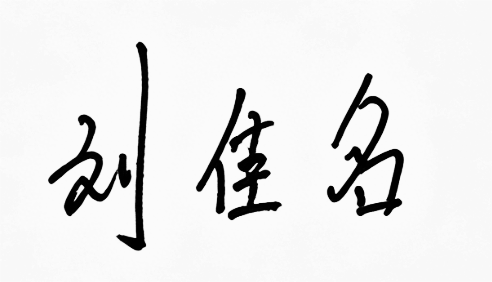 刘佳名